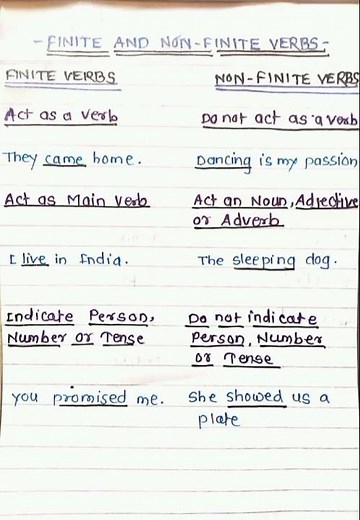 - FINITE AND NON-FINITE VERBS -
FINITE VERBS
NON-FINITE VERBS
Act as a verb
Do not act as a verb
They came home.
Dancing is my passion
Act as Main verb
Act an Noun, Adjective
or Adverb
I live in India.
The sleeping dog.
Indicate Person,
Number or Tense
Do not indicate
Person, Number
or Tense
you promised me.
She showed us a
plate